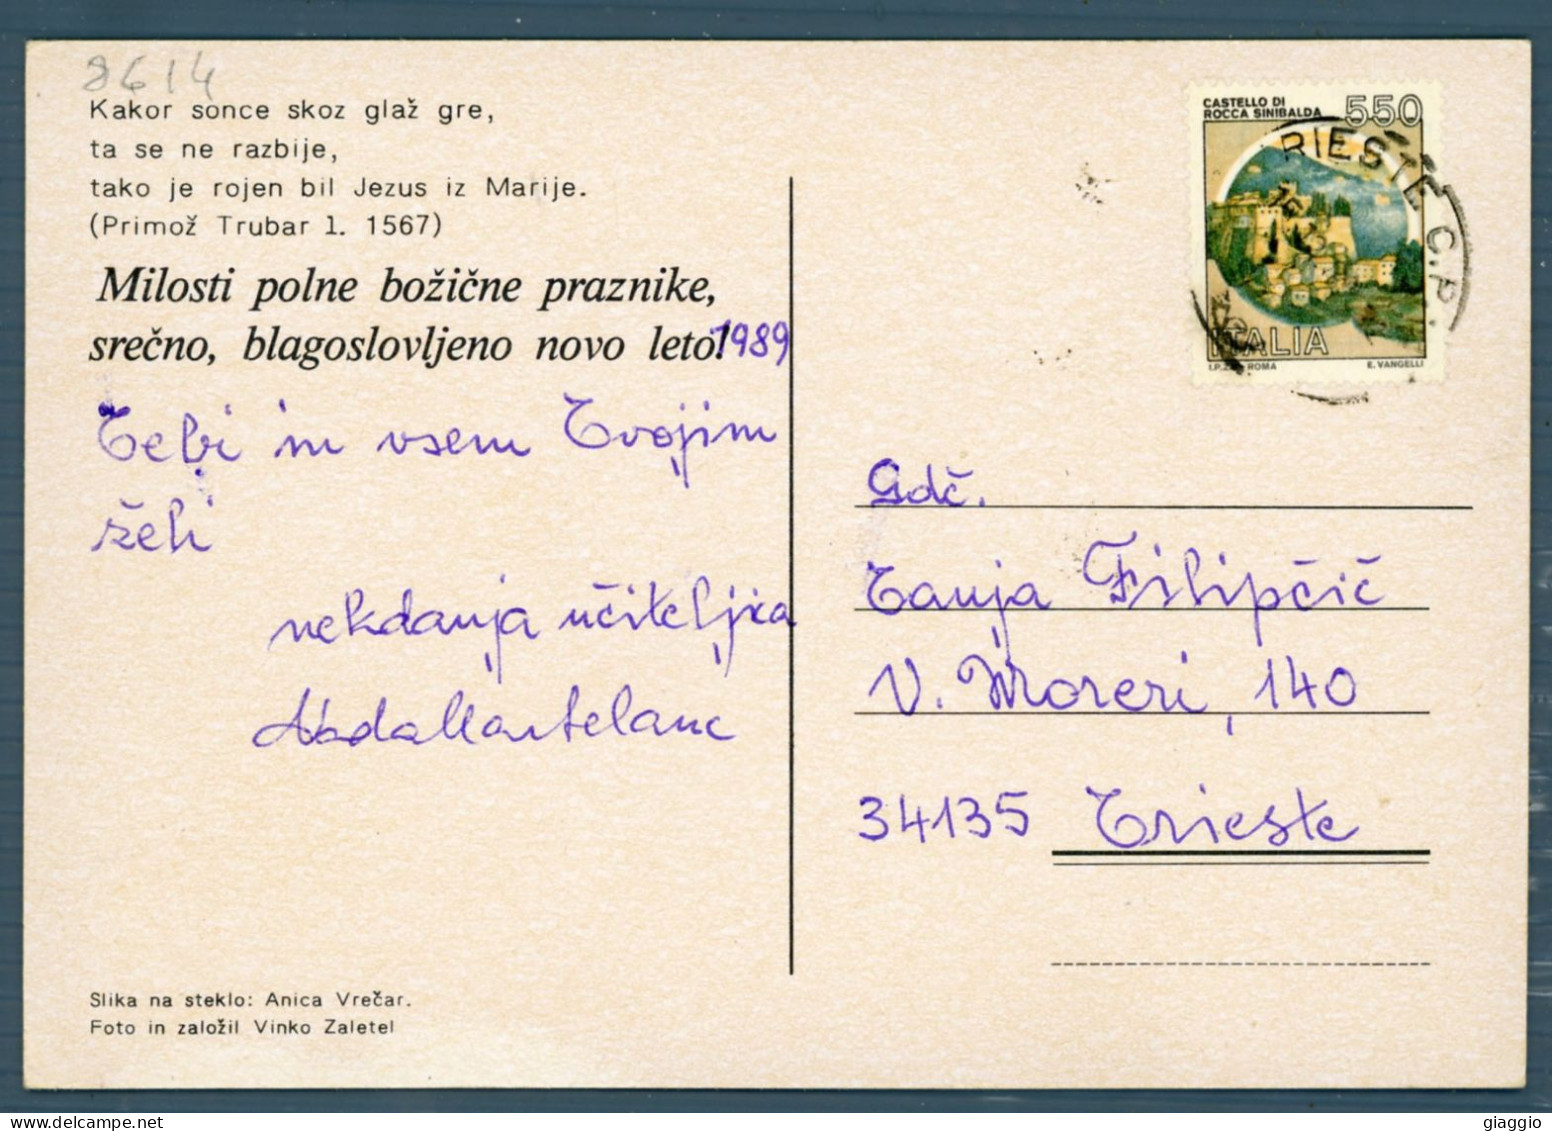 8614
Kakor sonce skoz glaž gre,
ta se ne razbije,
tako je rojen bil Jezus iz Marije.
(Primož Trubar l. 1567)
Milosti polne božične praznike,
srečno, blagoslovljeno novo leto! 1989
Tebi in vsem Tvojim
želi
nekdanja učiteljica
Slika na steklo: Anica Vrečar.
Foto in založil Vinko Zaletel
CASTELLO DI
ROCCA SINIBALDA
550
RIESTE C.P.
ITALIA
ROMA
E. VANGELLI
Gdč.
Tanja Filipčič
V. Moreri, 140
34135 Trieste
giaggio